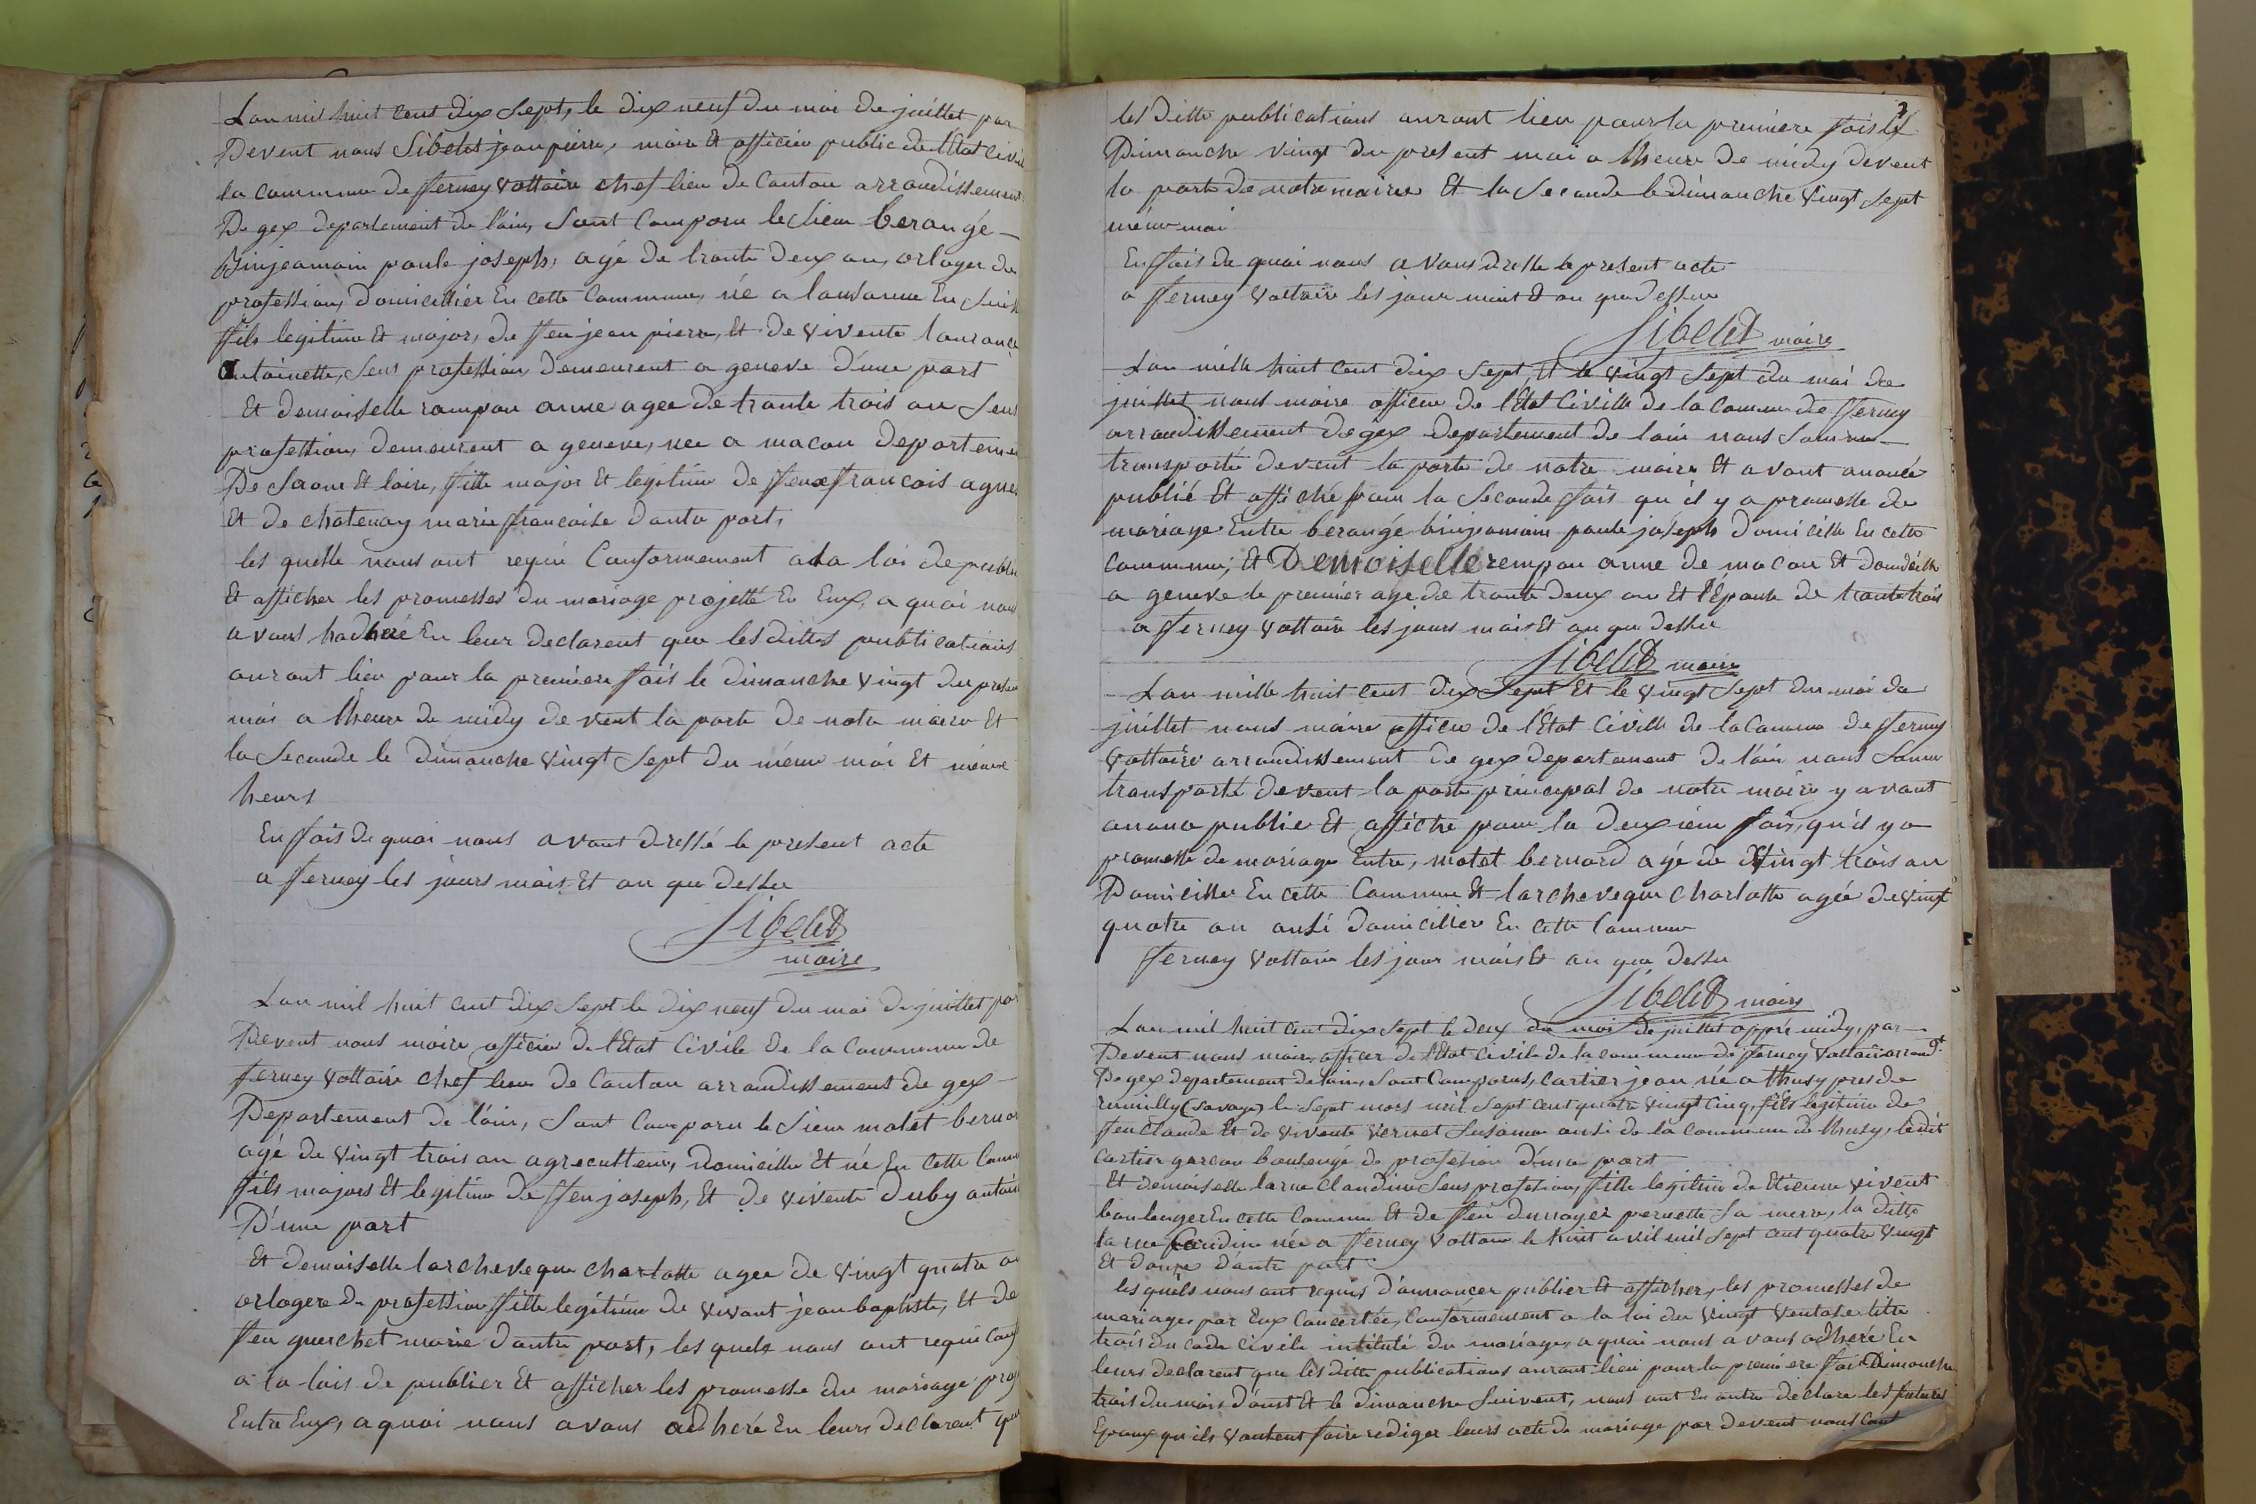 Lan mil huit cens dix Sept, le dix neuf du moi de juillet par
Devent nous Sibelet jean pierre, maire et officier public de l'Etat civil
la commune de fferney Voltaire chef lieu de Canton arrondissement
De gex departement de l'ain, Sont Comparu le sieur berangé
Binjeamain paule joseph, agé de trante deux an, orloger de
profession, domicillier En cette Commune, né a lausanne En Suis
ffils legitime et major, de ffeu jean pierre, et de vivente lauran
antoinette, Sens profession demeurent a geneve d'une part
Et demoiselle rampon anne agee de trante trois an Sens
profession, demeurent a geneve, née a macon departeme
De Saone Et loire, ffille major Et legitime de ffeue ffrancois agnes
Et de chatenay marie ffrancoise dautre part,
les quelle nous ont requi Conformement a la loi de publi
Et afficher les promesses du mariage projetté En Eux, a quoi nous
avons hadheré En leur declarent que lesdittes publications
auront lieu pour la premiere ffois le dimanche vingt du presen
moi a lheure de midy devent la porte de notre mairie Et
la Seconde le dimanche vingt Sept du même moi Et même
heurs
En ffois de quoi nous avont dressé le present acte
a fferney les jours mois Et an que dessu
Sibelet
maire
Lan mil huit cent dix Sept le dix neuf du moi de juillet par
Devent nous maire officier de l'Etat Civile de la Commune de
fferney Voltaire chef lieu de Canton arrondissement de gex
Departement de l'ain, Sont Comparu le Sieur matet bernar
agé de vingt trois an agreculteur, domicillie Et né En cette Comm
ffils majors Et legitime de ffeu joseph, Et de vivente duby antoin
D'une part
Et demoiselle larcheveque charlotte agee de vingt quatre an
orlogere de profession ffille legitime de vivant jean baptiste, Et de
ffeu guerchet marie dautre part, les quels nous ont requi Conf
a la lois de publier Et afficher les promesse du mariage proj
Entre Eux, a quoi nous avons adheré En leurs declarent que
2
les ditte publications auront lieu pour la premiere ffois le
Dimanche vingt du present moi a lheure de midy devent
la porte de notre mairie Et la Seconde le dimanche vingt Sept
même moi
En ffois de quoi nous avons dressé le present acte
a fferney Voltaire les jour mois Et an que dessu
Sibelet maire
Lan mille huit cent dix Sept, Et le vingt Sept du moi de
juillet nous maire officier de l'Etat Civille de la Commune de fferney
arrondissement de gex departement de lain nous Somme
transporté devent la porte de notre mairie Et avont anoncé
publié Et affiché pour la Seconde ffois qu'il y a promesse de
mariage Entre berangé binjamain paule joseph domicillé En cette
Commune, Et Demoiselle rempon anne de macon Et domicille
a geneve le premier agé de trante deux an Et l'Épouse de trante trois
a fferney Voltaire les jours mois Et an que dessu
Sibelet maire
Lan mille huit cent dix Sept Et le vingt Sept du moi de
juillet nous maire officier de l'Etat Civille de la Commune de fferney
Voltaire arrondissement de gex departement de l'ain nous Somme
transporté devent la porte principal de notre mairie y avont
anoncé publié Et affiché pour la deuxieme ffois, qu'il y a
promesse de mariage Entre, matet bernard agé de vingt trois an
Domicillie En cette Commune Et larcheveque Charlotte agée de vingt
quatre an ausi domiciliée En cette Commune
fferney Voltaire les jour mois Et an que dessu
Sibelet maire
Lan mil huit cent dix Sept le deux du moi de juillet apprè midy, par
Devent nous maire officier de l'Etat Civile de la commune de fferney Voltaire arrondt
De gex departement de lain, Sont Comparus, Cartier jean né a thusy pres de
rumilly (Savoye) le Sept mars mil Sept cent quatre vingt cinq, ffils legitime de
ffeu Claude Et de vivente vernet Susanne ausi de la commune de thusy, ledit
Cartier garcon boulengé de profession d'une part
Et demoiselle larue Claudine Sens profession, ffille legitime de Etienne vivent
boulenger En cette Commune Et de ffeu pernette Sa mere, la ditte
larue Claudine née a fferney Voltaire le huit avril mil Sept cent quatre vingt
Et douze d'autre part
les quels nous ont requis d'annoncer publier Et afficher, les promesses de
mariage par Eux Concertée, Conformement a la loi du vingt Ventose titre
trois du Code Civile intitulé du mariage, a quoi nous avons adheré En
leurs declarent que lès ditte publications auront lieu pour la premiere ffois Dimanche
trois du mois d'aout Et le dimanche Suivent, nous ont En outre declare les futures
Epoux qu'ils veulent ffaire rediger leurs acte de mariage par devent nous Conf